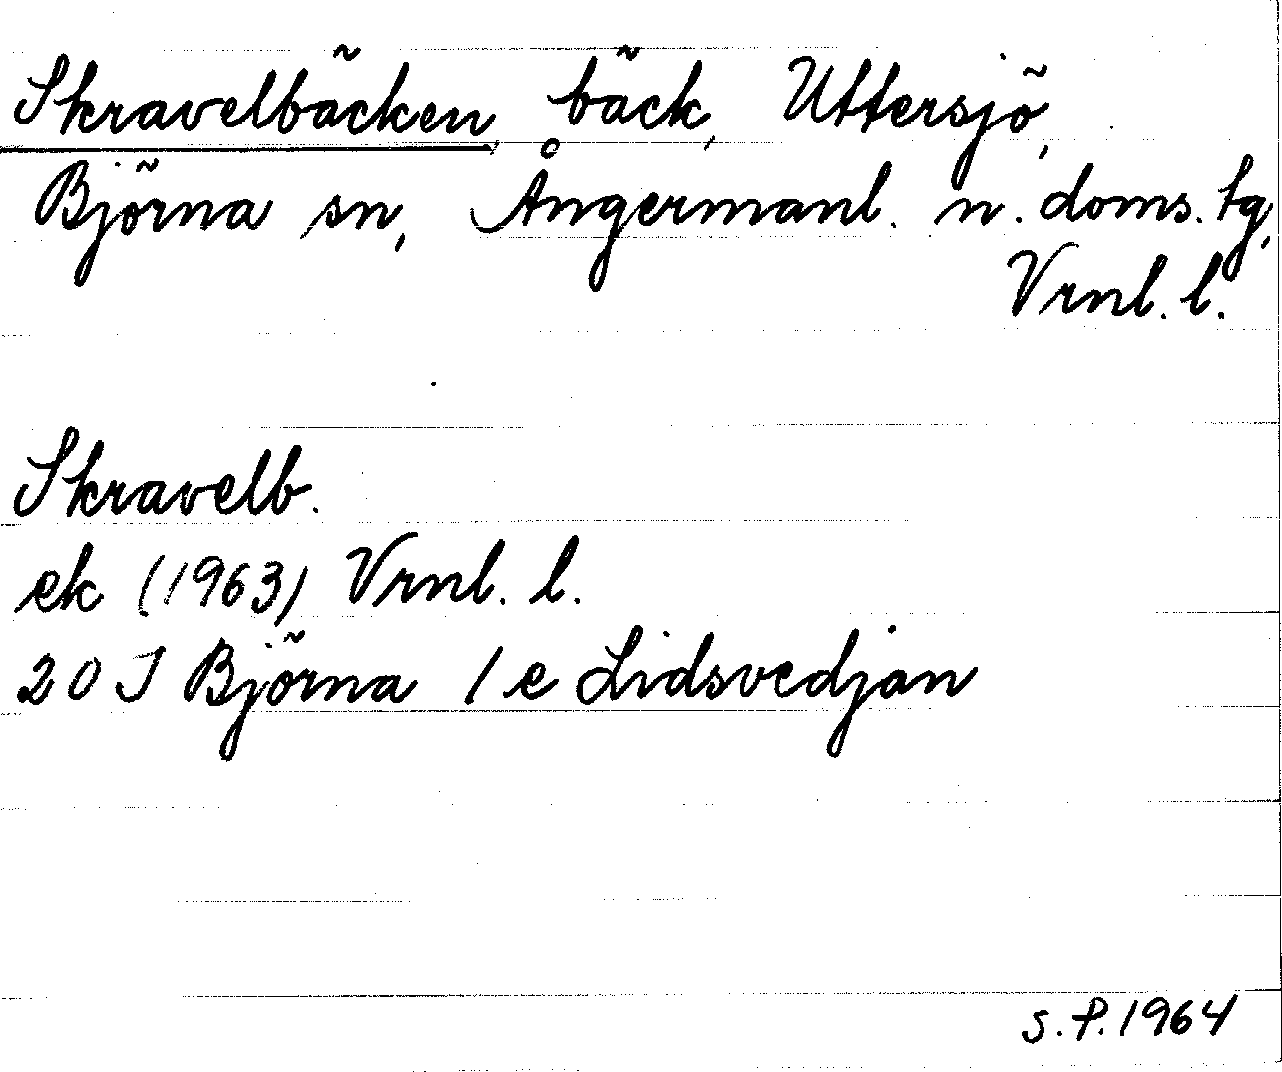 Skravelbäcken, bäck, Uttersjö,
Björna sn, Ångermanl. n. doms. tg,
Vrnl. l.
Skravelb.
ek (1963) Vrnl. l.
20 J Björna 1 e Lidsvedjan
S.P. 1964